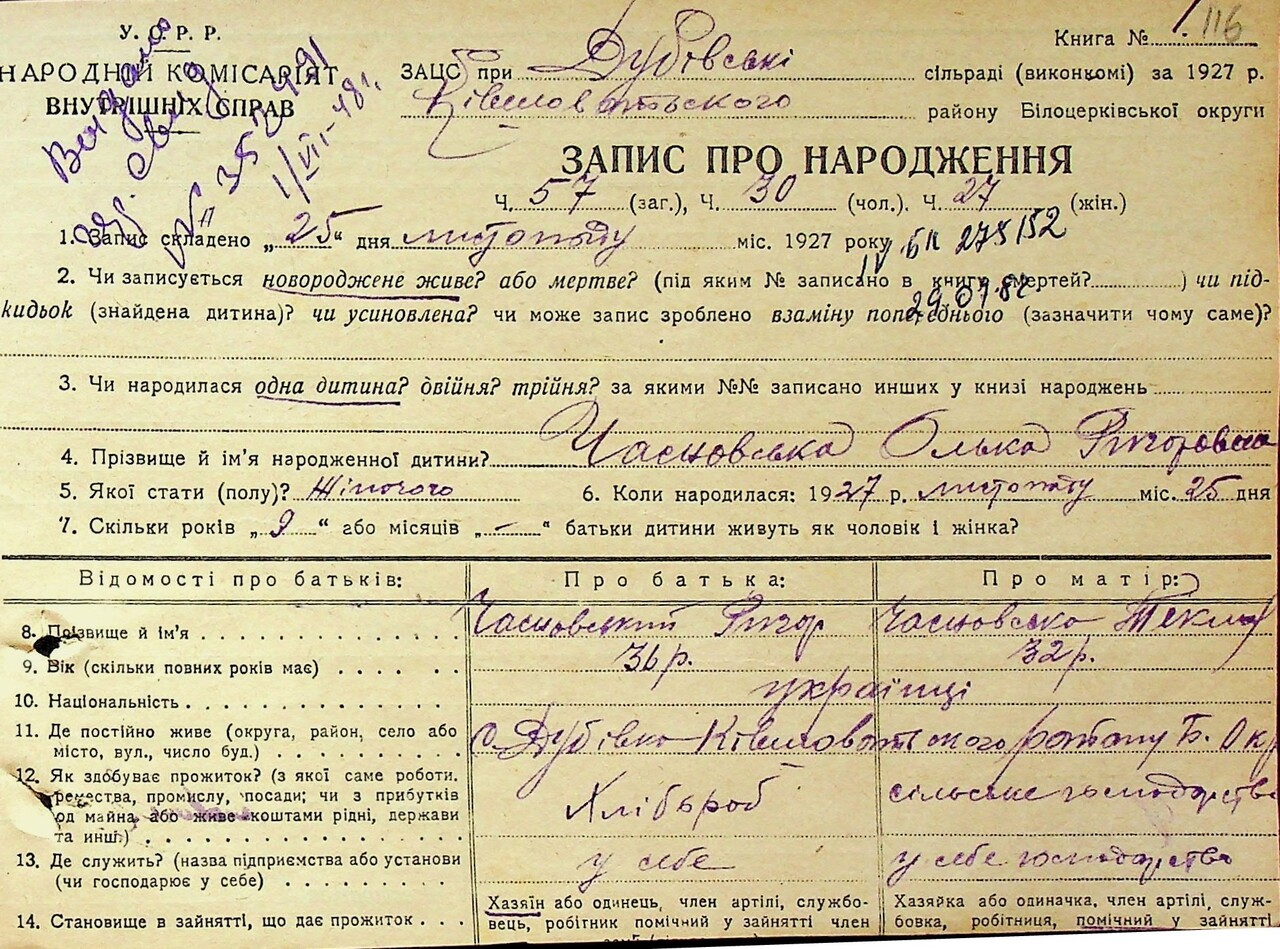 У. С. Р. Р.
НАРОДНИЙ КОМІСАРІЯТ
ВНУТРІШНІХ СПРАВ
Книга № 1 116
ЗАЦС при Дубовські сільраді (виконкомі) за 1927 р.
району Білоцерківської округи
ЗАПИС ПРО НАРОДЖЕННЯ
Ч. 57 (заг.), Ч. 30 (чол.). Ч. 27 (жін.)
1/VII-48 г.
1. Запис складено „25“ дня листопаду міс. 1927 року
275152
2. Чи записується новороджене живе? або мертве? (під яким № записано в книгу смертей?) чи під-
кидьок (знайдена дитина)? чи усиновлена? чи може запис зроблено взаміну попереднього (зазначити чому саме)?
3. Чи народилася одна дитина? двійня? трійня? за якими №№ записано инших у книзі народжень
4. Прізвище й ім'я народженної дитини? Часновська Олька Григоровна
5. Якої стати (полу)? Жіночого 6. Коли народилася: 1927 р. листопаду міс. 25 дня
7. Скільки років „9“ або місяців „—“ батьки дитини живуть як чоловік і жінка?
Відомості про батьків: Про батька: Про матір:
8. Прізвище й ім'я Часновський Григор Часновська Текля
9. Вік (скільки повних років має) 36 р. 32 р.
10. Національність українці
11. Де постійно живе (округа, район, село або
місто, вул., число буд.) с. Дубівка Б. Окр
12. Як здобуває прожиток? (з якої саме роботи.
ремества, промислу, посади; чи з прибутків
од майна, або живе коштами рідні, держави
та инш.) Хлібороб сільське господарство
13. Де служить? (назва підприємства або установи
(чи господарює у себе) у себе у себе господарство
14. Становище в зайнятті, що дає прожиток
Хазяїн або одинець, член артілі, службо-
вець, робітник помічний у зайнятті член
Хазяйка або одиначка, член артілі, служ-
бовка, робітниця, помічний у зайнятті